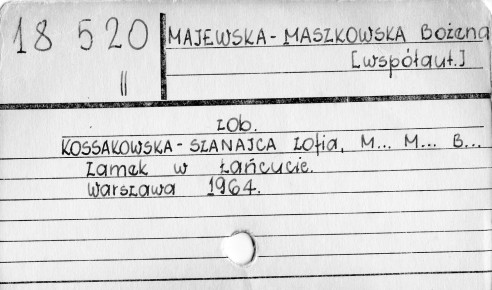 18 520
II
MAJEWSKA-MASZKOWSKA Bożena
[współaut.]
zob.
KOSSAKOWSKA-SZANAJCA Zofia, M... M... B...
Zamek w Łańcucie.
Warszawa 1964.